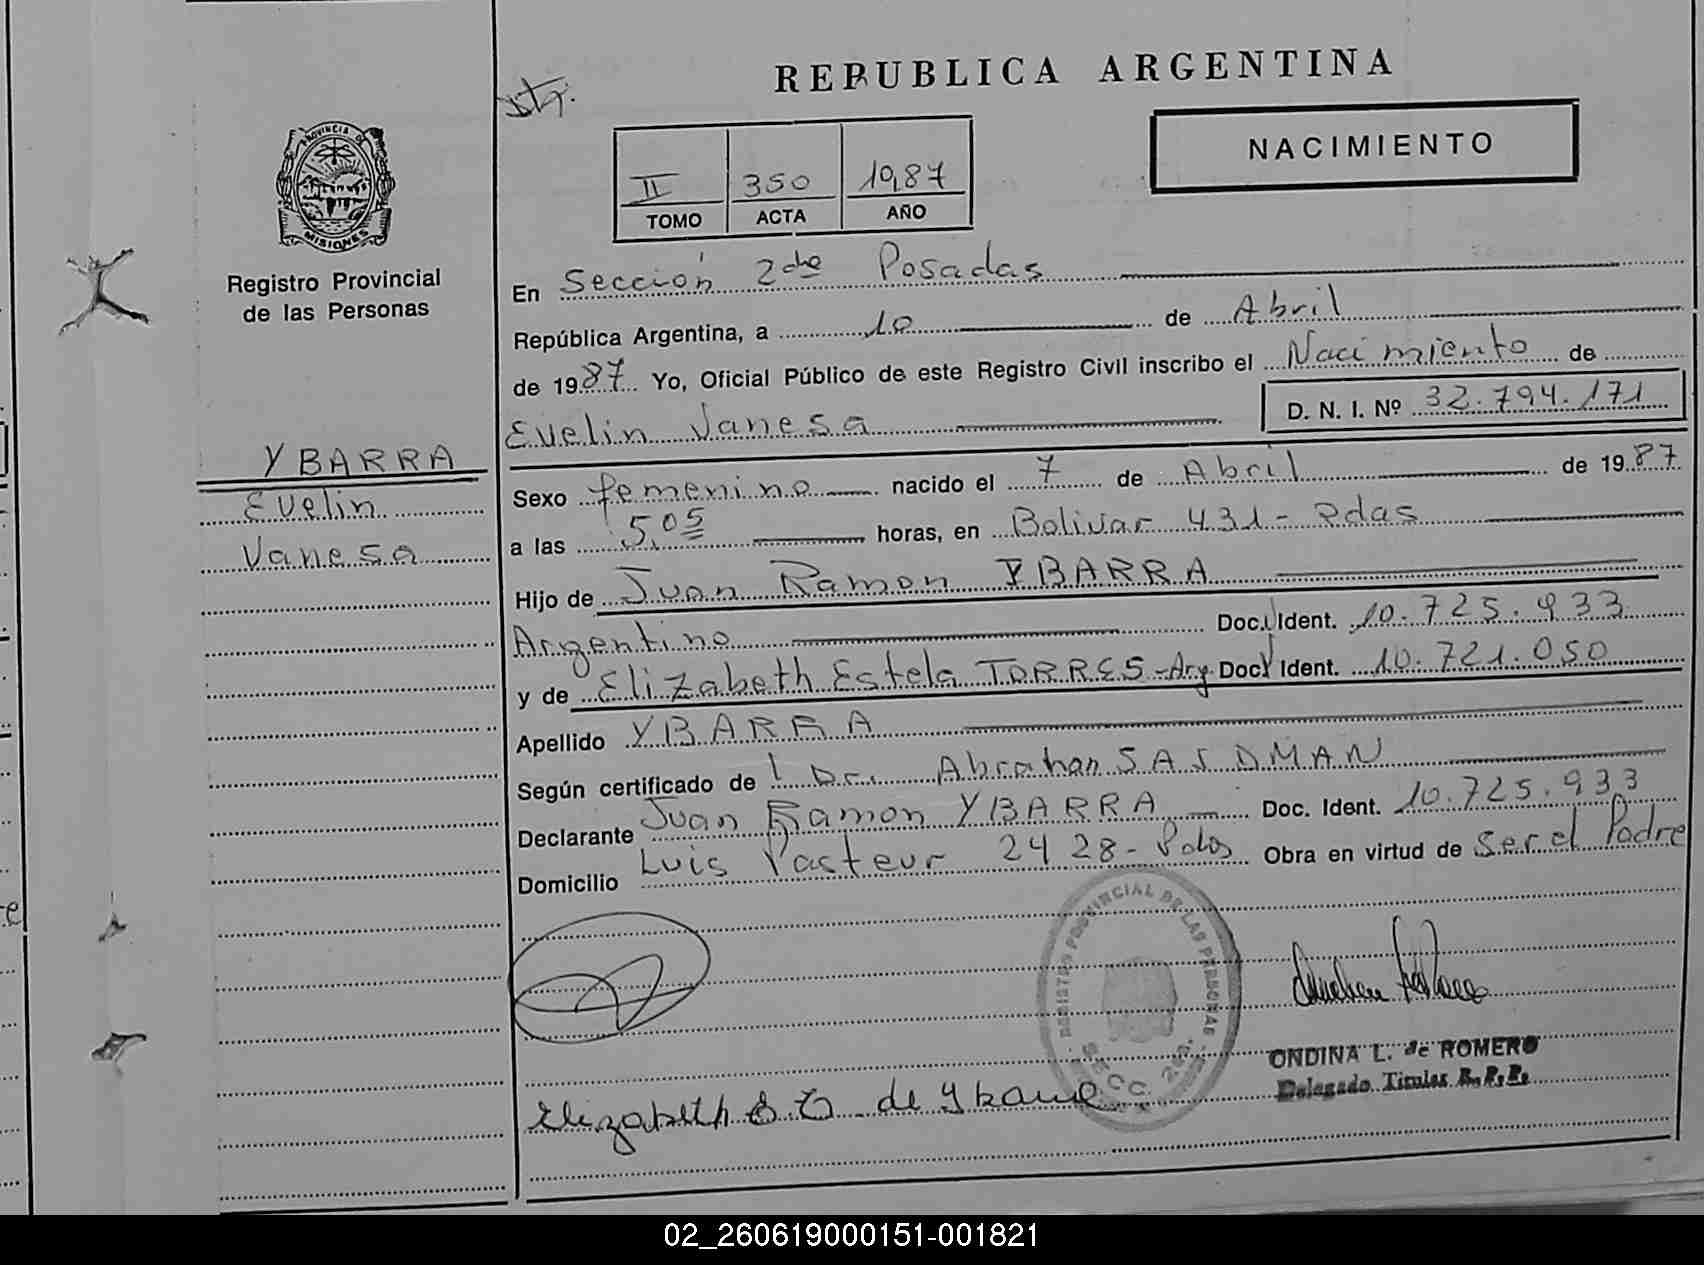 REPUBLICA ARGENTINA
NACIMIENTO
II 350 1987
TOMO ACTA AÑO
PROVINCIA DE
MISIONES
Registro Provincial
de las Personas
YBARRA
Evelin
Vanesa
En Sección 2da Posadas
República Argentina, a 10 de Abril
de 1987 Yo, Oficial Público de este Registro Civil inscribo el Nacimiento de
Evelin Vanesa D. N. I. Nº 32.794.171
Sexo femenino nacido el 7 de Abril de 1987
a las 5,05 horas, en Bolivar 431 - Pdas
Hijo de Juan Ramon YBARRA
Argentino Doc. Ident. 10.725.933
y de Elizabeth Estela TORRES - Arg. Doc. Ident. 10.721.050
Apellido YBARRA
Según certificado de Dr. Abrahan
Declarante Juan Ramon YBARRA Doc. Ident. 10.725.933
Domicilio Luis Pasteur 2428 - Pdas Obra en virtud de ser el Padre
REGISTRO PROVINCIAL DE LAS PERSONAS
SECC. 2da.
ONDINA L. de ROMERO
Delegado Titular R.P.P.
Elizabeth E T de Ybarra
02_260619000151-001821